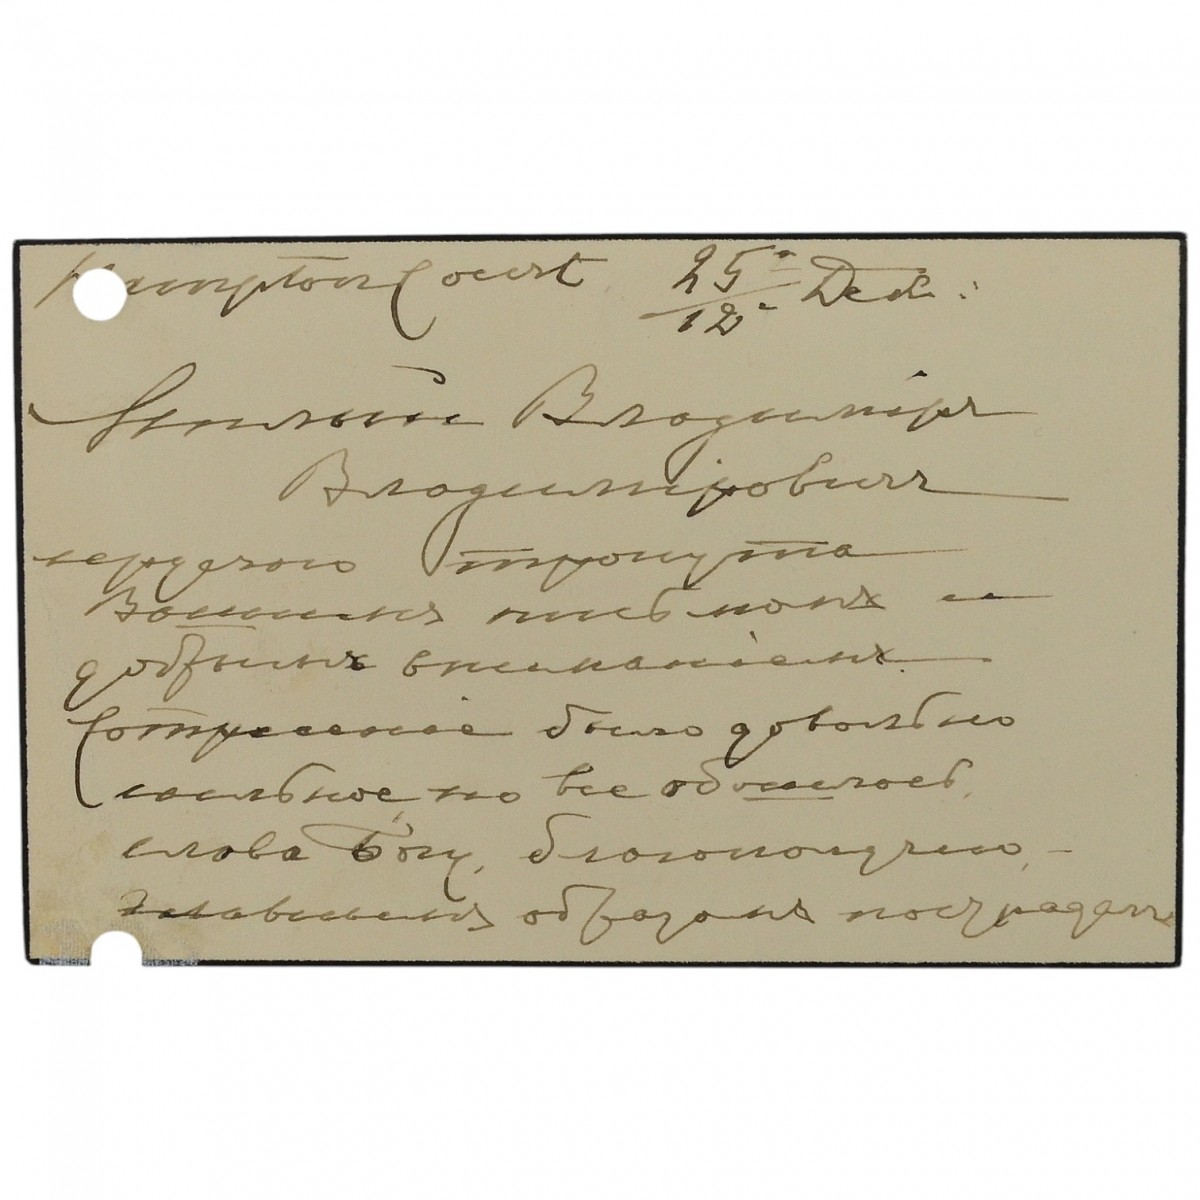 Hampton Court 25/12 Dec.
Милый Владиміръ
Владиміровичъ
сердечно тронута
Вашимъ письмомъ и
добрымъ вниманіемъ.
Сотрясеніе было довольно
сильное, но все обошлось,
слова Богу, благополучно, –
главнымъ образомъ пострадали